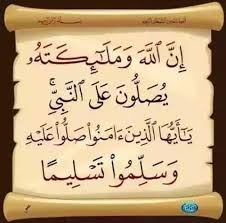 إِنَّ اللَّهَ وَمَلَٰٓئِكَتَهُۥ
يُصَلُّونَ عَلَى النَّبِيِّ ۚ
يَٰٓأَيُّهَا الَّذِينَ ءَامَنُوا۟ صَلُّوا۟ عَلَيْهِ
وَسَلِّمُوا۟ تَسْلِيمًا